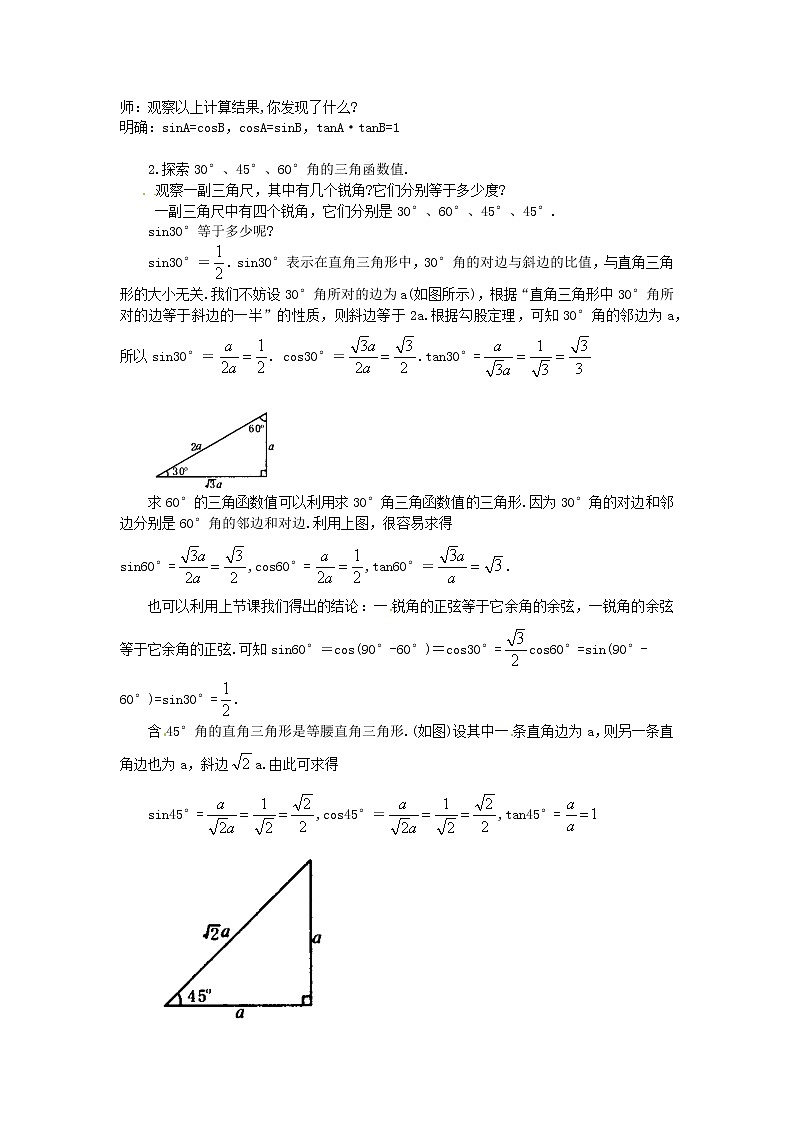 师:观察以上计算结果,你发现了什么?
明确:sinA=cosB,cosA=sinB,tanA·tanB=1
2.探索30°、45°、60°角的三角函数值.
观察一副三角尺,其中有几个锐角?它们分别等于多少度?
一副三角尺中有四个锐角,它们分别是30°、60°、45°、45°.
sin30°等于多少呢?
sin30°=1/2.sin30°表示在直角三角形中,30°角的对边与斜边的比值,与直角三角
形的大小无关.我们不妨设30°角所对的边为a(如图所示),根据“直角三角形中30°角所
对的边等于斜边的一半”的性质,则斜边等于2a.根据勾股定理,可知30°角的邻边为a,
所以sin30°=a/2a=1/2. cos30°=√3a/2a=√3/2.tan30°=a/√3a=1/√3=√3/3
60°
2a
a
30°
√3a
求60°的三角函数值可以利用求30°角三角函数值的三角形.因为30°角的对边和邻
边分别是60°角的邻边和对边.利用上图,很容易求得
sin60°=√3a/2a=√3/2,cos60°=a/2a=1/2,tan60°=√3a/a=√3.
也可以利用上节课我们得出的结论:一锐角的正弦等于它余角的余弦,一锐角的余弦
等于它余角的正弦.可知sin60°=cos(90°-60°)=cos30°=√3/2cos60°=sin(90°-
60°)=sin30°=1/2.
含45°角的直角三角形是等腰直角三角形.(如图)设其中一条直角边为a,则另一条直
角边也为a,斜边√2a.由此可求得
sin45°=a/√2a=1/√2=√2/2,cos45°=a/√2a=1/√2=√2/2,tan45°=a/a=1
√2a
a
45°
a